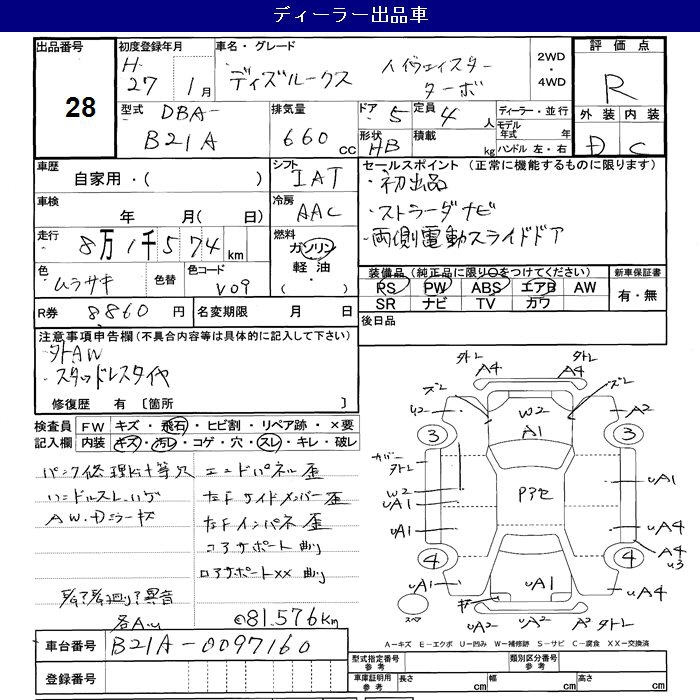 ディーラー出品車
出品番号 28
初度登録年月 H 27 1月
車名・グレード ディズルークス ハイウェイスター ターボ
2WD・4WD
評価点 R
外装 D 内装 C
型式 DBA- B21A
排気量 660 cc
ドア 5 定員 4 人
形状 HB 積載 kg
ディーラー・並行
モデル年式 年
ハンドル 左・右
車歴 自家用・( )
シフト IAT
車検 年 月( 日)
冷房 AAC
走行 8万1千574km
燃料 ガソリン 軽油・
色 ムラサキ 色替 色コード V09
R券 8860円 名変期限 月 日
セールスポイント (正常に機能するものに限ります)
・初出品
・ストラーダナビ
・両側電動スライドドア
装備品(純正品に限り○をつけてください) 新車保証書
PS PW ABS エアB AW 有・無
SR ナビ TV カワ
後日品
注意事項申告欄(不具合内容等は具体的に記入して下さい)
・外AW
・スタッドレスタイヤ
修復歴 有 〔箇所 〕
検査員 FW キズ・飛石・ヒビ割・リペア跡・×要
記入欄 内装 キズ・汚レ・コゲ・穴・スレ・キレ・破レ
パンク修理キット等欠 エンドパネル歪
ハンドルスレ、ハゲ 左Fサイドメンバー歪
AW・Dミラーキズ 左Fインパネ歪
コアサポート 曲り
ロアサポートXX 曲り
81,576Km
車台番号 B21A-0097160
登録番号
外レ A4 A4 外レ
ズレ ズレ
U2 W2 A2
3 A1 3
カバー外レ
W2
UA1 P3セ UA1
UA1 UA4
4 4 A4 U3
UA1 UA1 UA4
スペア UA2 UA2 A2 外レ
A-キズ E-エクボ U-凹み W-補修跡 S-サビ C-腐食 XX-交換済
型式指定番号 参考 類別区分番号 参考
車庫証明用 参考 長さ cm 幅 cm 高さ cm